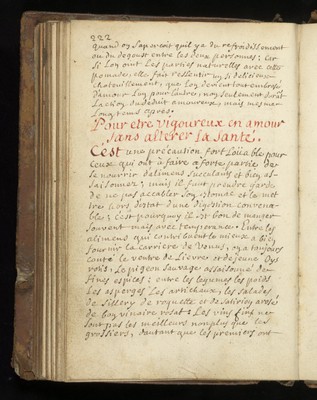 222
quand on sapercoit quil ya du refroidissement
ou du degoust entre les deux personnes: Car
si Lon oint Les parties naturelles avec cette
pomade; elle fait ressentir un si delicieux
chatouillement, que Lon devient tout embrasé
d'amour Lun pour Lautre; non seulement durant
L'action du deduit amoureux, mais mesme
Long tems apres.
Pour etre Vigoureux en amour
sans alterer La santé.
C'est une précaution fort Loüable pour
Ceux qui ont à faire a forte partie de
se nourrir d'alimens succulans et bien as=
saisonnez; mais il faut prendre garde
de ne pas accabler son estomac et le met
tre hors d'etat d'une digestion convena=
ble; c'est pourquoy il est bon de manger
souvent mais avec temperance. Entre les
alimens qui contribuent le mieux a bien
fournir la carriere de Venus, on a toujours
conté le ventre de Lievre et de jeune Oys
Le pigeon sauvage assaisonné de
fines espices: entre les legumes les poids
Les asperges Les artichaux, les salades
de Sillery de roquette et de Satirion arosé
de bon vinaire rosat: Les vins fins ne
sont pas les meilleurs non plus que les
grossiers, d'autant que les premiers ont